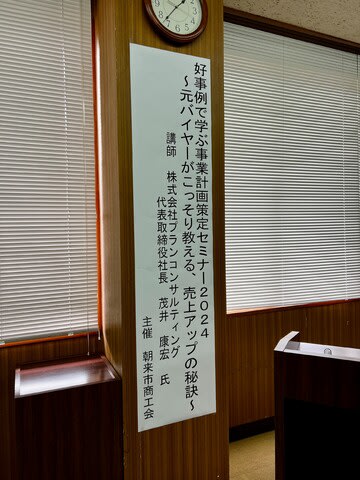 好事例で学ぶ事業計画策定セミナー2024
～元バイヤーがこっそり教える、売上アップの秘訣～
講師　株式会社プランコンサルティング
代表取締役社長　茂井　康宏　氏
主催　朝来市商工会